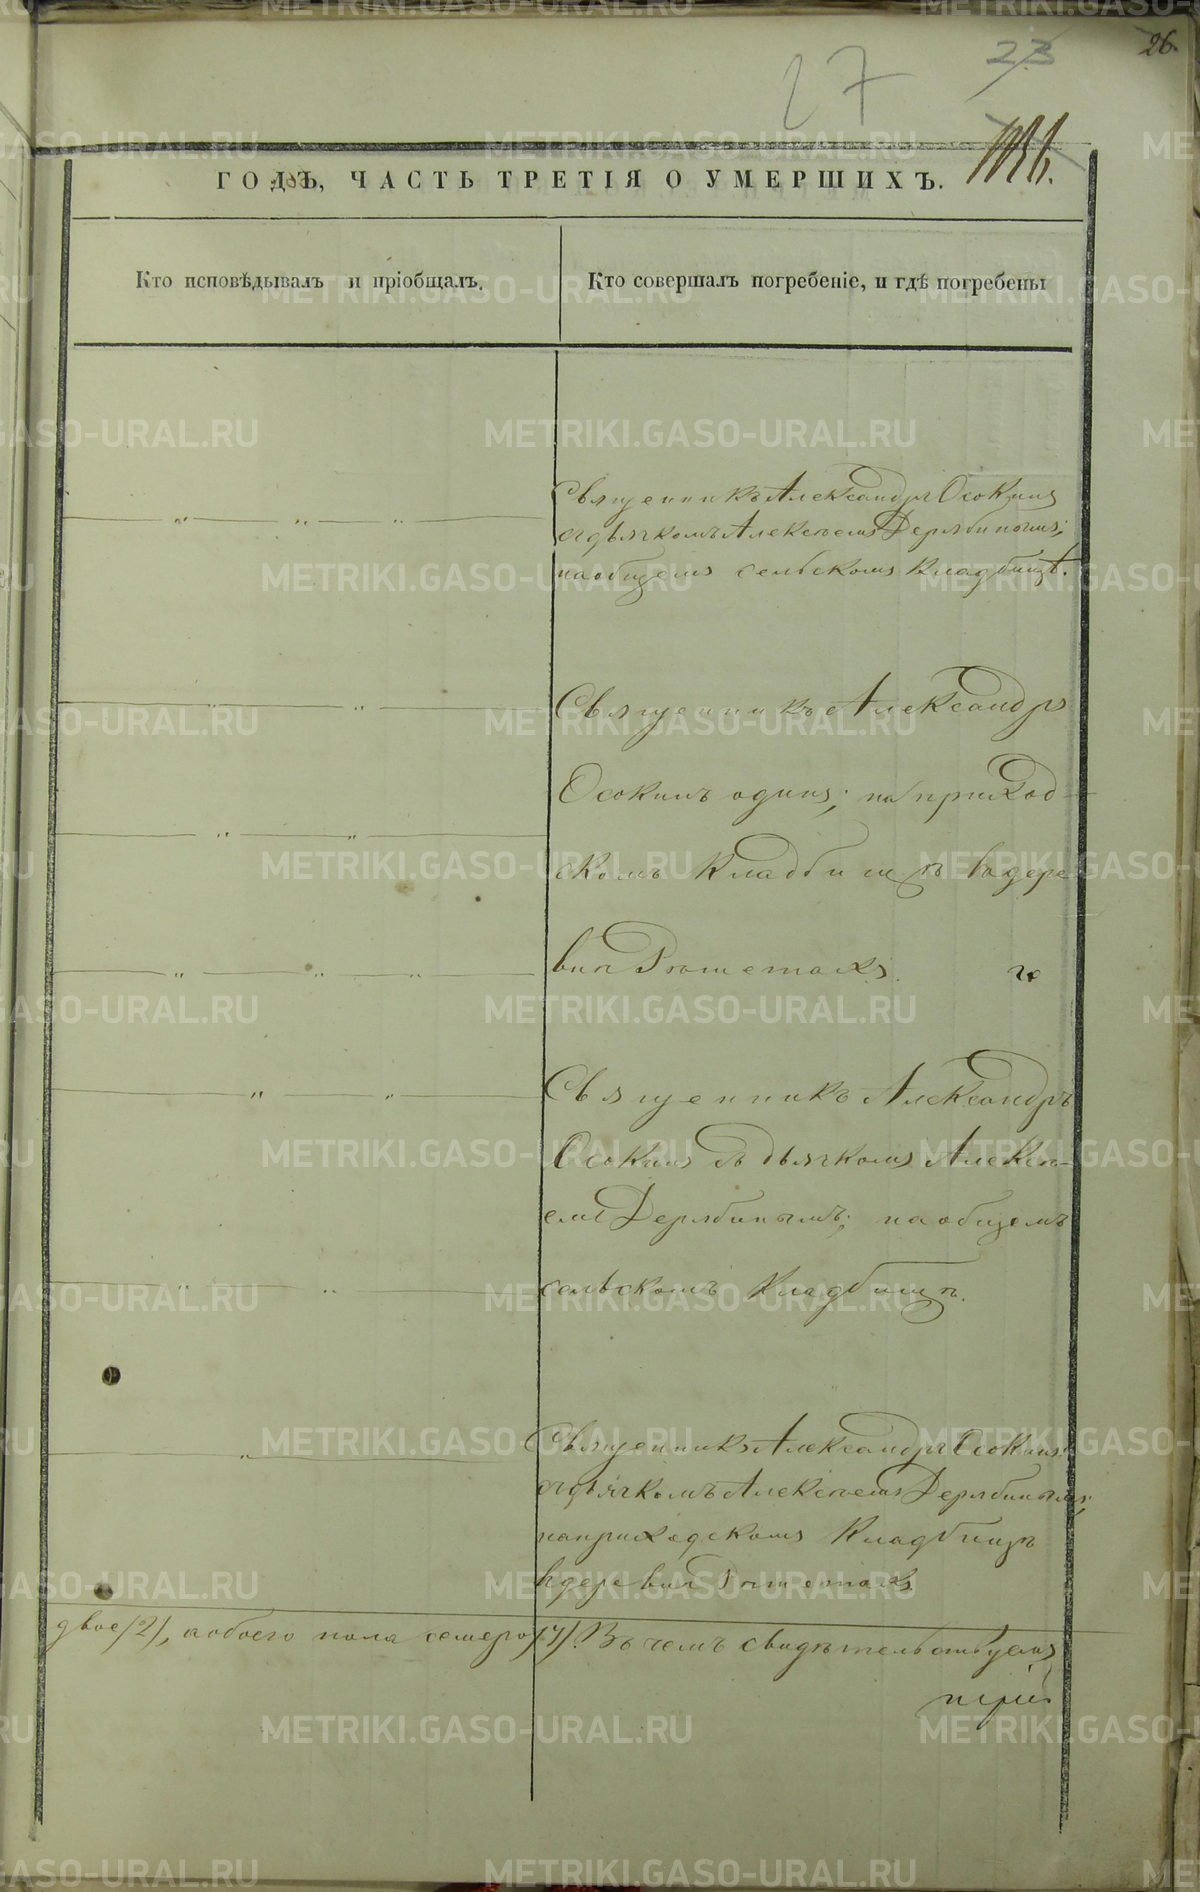 27
23
26.
ГОДЪ, ЧАСТЬ ТРЕТІЯ О УМЕРШИХЪ.
Кто исповѣдывалъ и пріобщалъ.
Кто совершалъ погребеніе, и гдѣ погребены
Священникъ Александръ Осокинъ
съ дьячкомъ Алексѣемъ Дерябинымъ;
на общемъ сельскомъ кладбищѣ.
Священникъ Александръ
Осокинъ одинъ; на приход-
скомъ кладбищѣ въ дере
внѣ
Священникъ Александръ
Осокинъ съ дьячкомъ Алексѣ-
емъ Дерябинымъ; на общемъ
сельскомъ кладбищѣ.
Священникъ Александръ Осокинъ
съ дьячкомъ Алексѣемъ Дерябинымъ;
на приходскомъ кладбищѣ
въ деревнѣ
двое (2), а обоего пола семеро (7). Въ чемъ свидѣтельствуемъ
METRIKI.GASO-URAL.RU